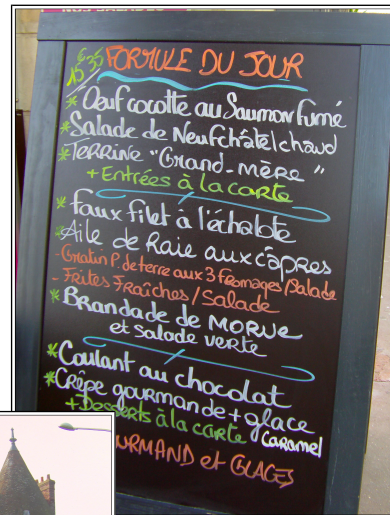 15€35 FORMULE DU JOUR
* Oeuf cocotte au Saumon fumé
* Salade de Neufchâtel chaud
* TERRINE "Grand-mère"
+ Entrées à la carte
* Faux filet à l'échalote
* Aile de Raie aux câpres
- Gratin P. de terre aux 3 fromages / Salade
- Frites FRAîches / Salade
* Brandade de MORUE
et salade verte
* Coulant au chocolat
* Crêpe gourmande + glace
Caramel
+ Desserts à la carte
GOURMAND et GLACES